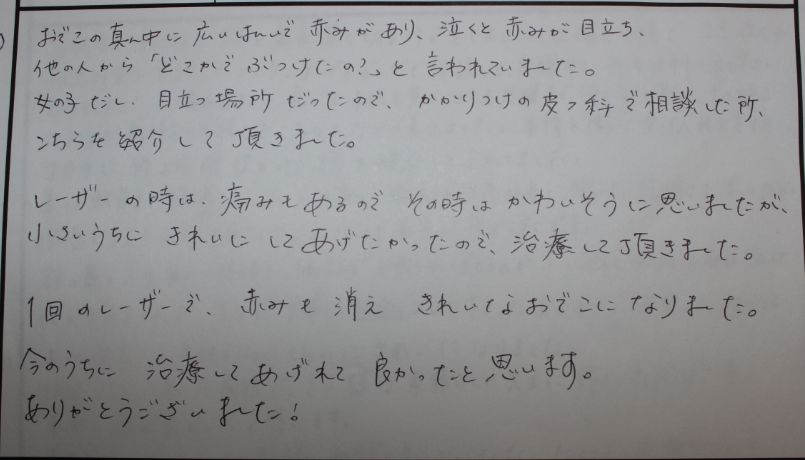 おでこの真ん中に広いはんいで赤みがあり、泣くと赤みが目立ち、
他の人から「どこかでぶつけたの?」と言われていました。
女の子だし、目立つ場所だったので、かかりつけの皮フ科で相談した所、
こちらを紹介して頂きました。
レーザーの時は、痛みもあるのでその時はかわいそうに思いましたが、
小さいうちにきれいにしてあげたかったので、治療して頂きました。
1回のレーザーで、赤みも消えきれいなおでこになりました。
今のうちに治療してあげれて良かったと思います。
ありがとうございました!